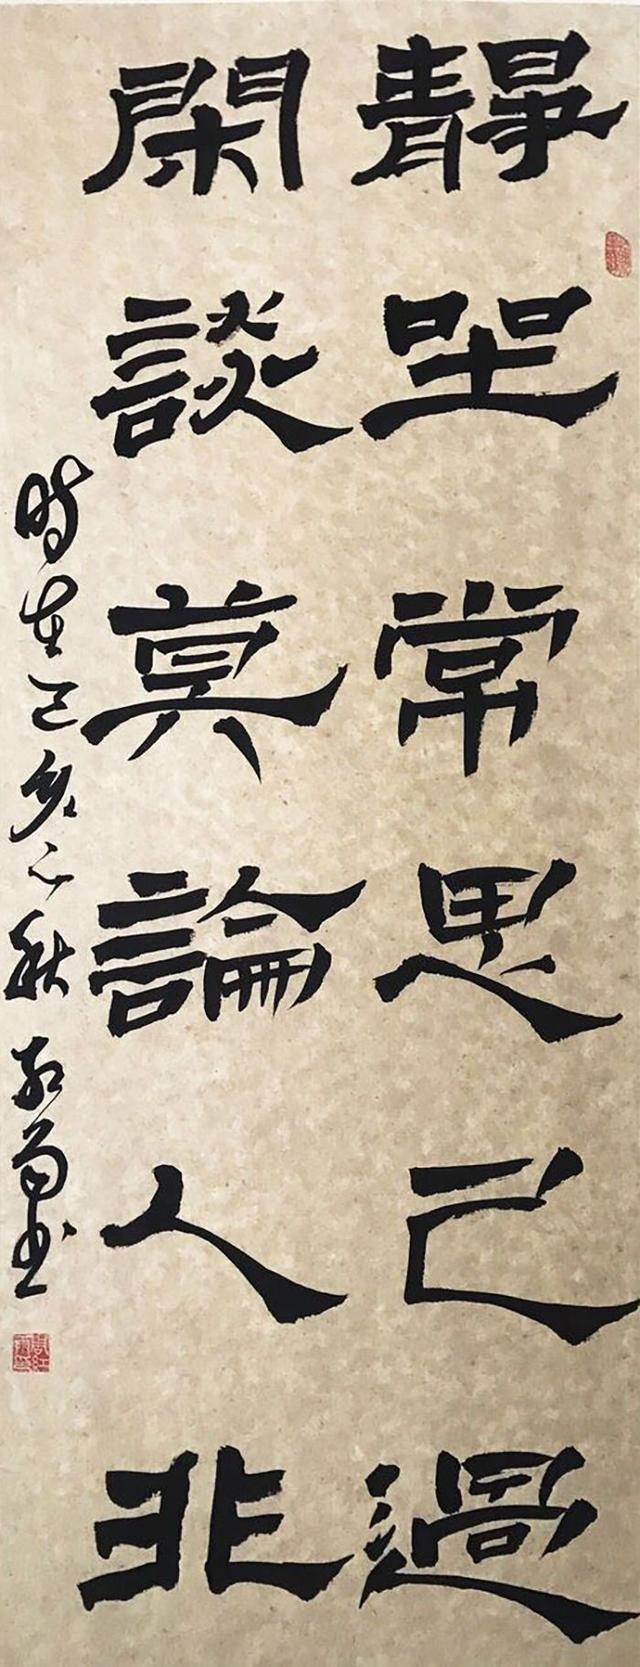 靜坐常思己過
閑談莫論人非
時在己亥之秋